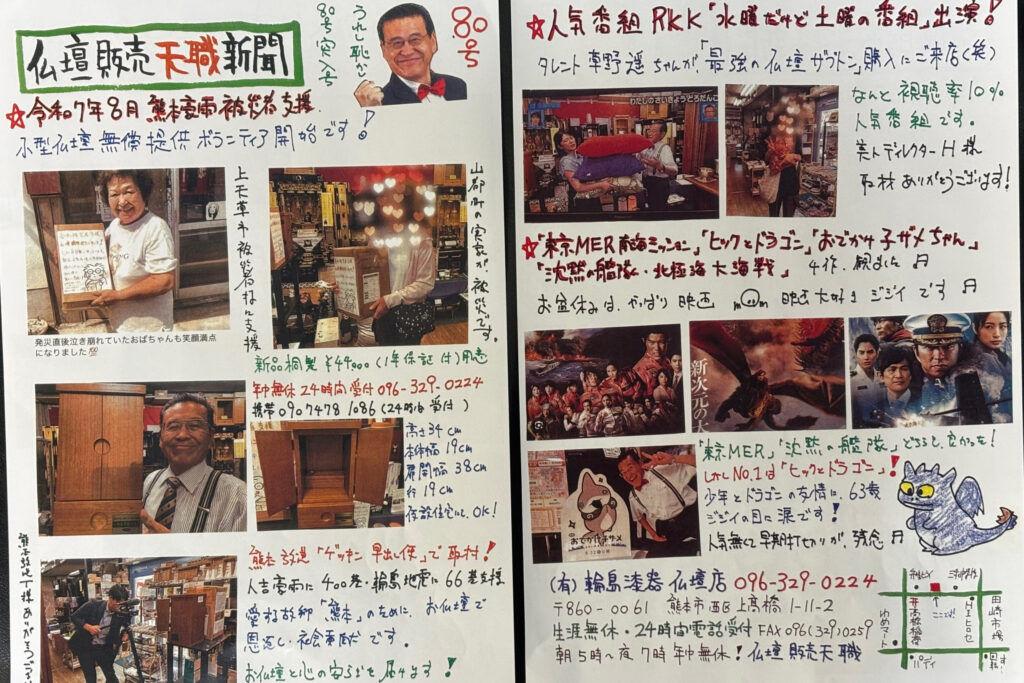 80号
うれし恥かし
80号突入号
仏壇販売天職新聞
☆令和7年8月熊本豪雨被災者支援
小型仏壇無償提供ボランティア開始です!
上天草市被災者様に支援
山都町の実家が被災です。
発災直後泣き崩れていたおばちゃんも笑顔満点
になりました
新品桐製¥44,000(1年保証付)用意
年中無休24時間受付096-329-0224
携帯09074781086(24時間受付)
高さ34cm
本体幅19cm
扉開幅38cm
行19cm
仮設住宅にも、OK!
熊本放送「ゲツキン早出し便」で取材!
人吉豪雨に400基・輪島地震に66基支援
愛する故郷「熊本」のために、お仏壇で
恩返し・社会貢献です。
お仏壇と心の安らぎを届けます!
☆人気番組RKK「水曜だけど土曜の番組」出演!
タレント草野遥ちゃんが「最強の仏壇ザブトン」購入にご来店(笑)
わたしのさいきょうどろだんご
なんと視聴率10%
人気番組です。
美人ディレクターH様
取材ありがとうございます!
☆「東京MER南海ミッション」「ヒックとドラゴン」「おでかけ子ザメちゃん」
「沈黙の艦隊・北極海大海戦」4作、観ました♬
お盆休みは、やっぱり映画 映画大好きジジイです♬
新次元の
おでかけ子ザメ
「東京MER」「沈黙の艦隊」どちらも、良かった!
しかしNo.1は「ヒックとドラゴン」!
少年とドラゴンの友情に、63歳
ジジイの目に涙です!
人気無くて早期打ち切りが、残念♬
(有)輪島漆器仏壇店 096-329-0224
〒860-0061 熊本市西区上高橋1-11-2
生涯無休・24時間電話受付 FAX096(329)0259
朝5時〜夜7時年中無休!仏壇販売天職
高橋稲荷
ここ
ヒロセ
田崎市場
ゆめマート